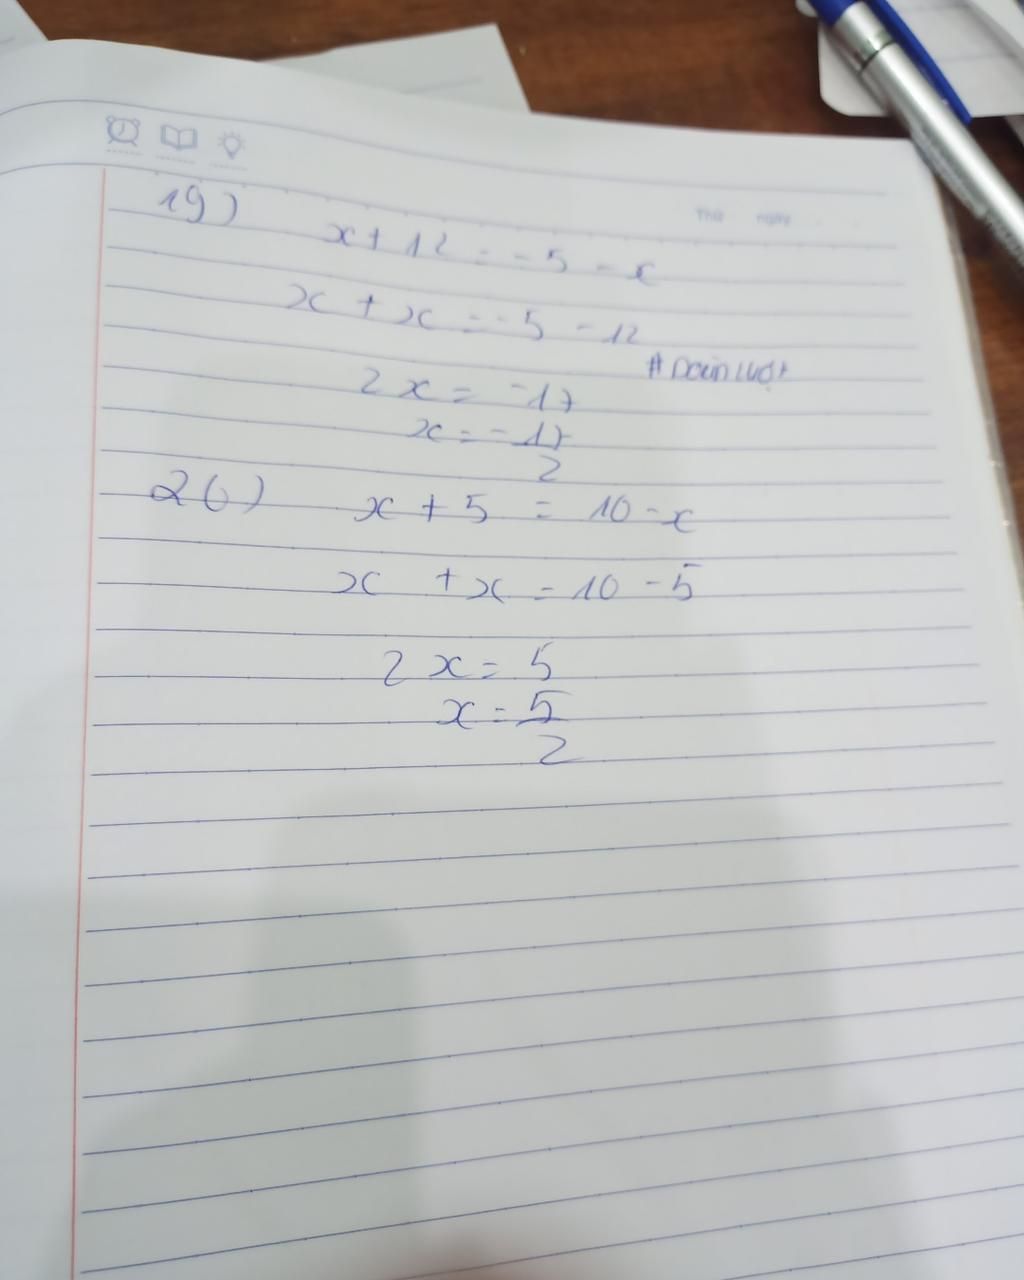 Thứ ngày
19)
x + 12 = -5 - x
x + x = -5 - 12
2x = -17
x = -17/2
20)
x + 5 = 10 - x
x + x = 10 - 5
2x = 5
x = 5/2